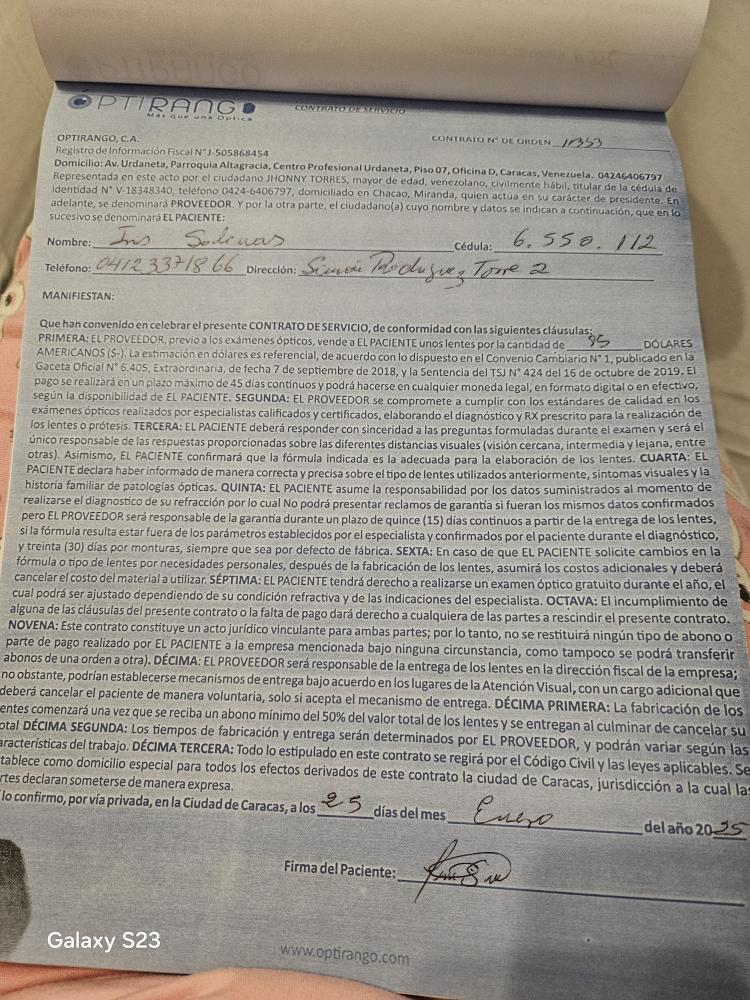 OPTIRANGO
Más que una Optica
CONTRATO DE SERVICIO
OPTIRANGO, C.A.
CONTRATO N° DE ORDEN 11353
Registro de Información Fiscal N°J-505868454
Domicilio: Av. Urdaneta, Parroquia Altagracia, Centro Profesional Urdaneta, Piso 07, Oficina D, Caracas, Venezuela. 04246406797
Representada en este acto por el ciudadano JHONNY TORRES, mayor de edad, venezolano, civilmente hábil, titular de la cédula de
identidad N° V-18348340, teléfono 0424-6406797, domiciliado en Chacao, Miranda, quien actúa en su carácter de presidente. En
adelante, se denominará PROVEEDOR. Y por la otra parte, el ciudadano(a) cuyo nombre y datos se indican a continuación, que en lo
sucesivo se denominará EL PACIENTE:
Nombre: Iris Salinas Cédula: 6.550.112
Teléfono: 0412 3371866 Dirección: Simón Rodriguez Torre 2
MANIFIESTAN:
Que han convenido en celebrar el presente CONTRATO DE SERVICIO, de conformidad con las siguientes cláusulas:
PRIMERA: EL PROVEEDOR, previo a los exámenes ópticos, vende a EL PACIENTE unos lentes por la cantidad de 95 DÓLARES
AMERICANOS ($-). La estimación en dólares es referencial, de acuerdo con lo dispuesto en el Convenio Cambiario N° 1, publicado en la
Gaceta Oficial N° 6.405, Extraordinaria, de fecha 7 de septiembre de 2018, y la Sentencia del TSJ N° 424 del 16 de octubre de 2019. El
pago se realizará en un plazo máximo de 45 días continuos y podrá hacerse en cualquier moneda legal, en formato digital o en efectivo,
según la disponibilidad de EL PACIENTE. SEGUNDA: EL PROVEEDOR se compromete a cumplir con los estándares de calidad en los
exámenes ópticos realizados por especialistas calificados y certificados, elaborando el diagnóstico y RX prescrito para la realización de
los lentes o prótesis. TERCERA: EL PACIENTE deberá responder con sinceridad a las preguntas formuladas durante el examen y será el
único responsable de las respuestas proporcionadas sobre las diferentes distancias visuales (visión cercana, intermedia y lejana, entre
otras). Asimismo, EL PACIENTE confirmará que la fórmula indicada es la adecuada para la elaboración de los lentes. CUARTA: EL
PACIENTE declara haber informado de manera correcta y precisa sobre el tipo de lentes utilizados anteriormente, síntomas visuales y la
historia familiar de patologías ópticas. QUINTA: EL PACIENTE asume la responsabilidad por los datos suministrados al momento de
realizarse el diagnostico de su refracción por lo cual No podrá presentar reclamos de garantía si fueran los mismos datos confirmados
pero EL PROVEEDOR será responsable de la garantía durante un plazo de quince (15) días continuos a partir de la entrega de los lentes,
si la fórmula resulta estar fuera de los parámetros establecidos por el especialista y confirmados por el paciente durante el diagnóstico,
y treinta (30) días por monturas, siempre que sea por defecto de fábrica. SEXTA: En caso de que EL PACIENTE solicite cambios en la
fórmula o tipo de lentes por necesidades personales, después de la fabricación de los lentes, asumirá los costos adicionales y deberá
cancelar el costo del material a utilizar. SÉPTIMA: EL PACIENTE tendrá derecho a realizarse un examen óptico gratuito durante el año, el
cual podrá ser ajustado dependiendo de su condición refractiva y de las indicaciones del especialista. OCTAVA: El incumplimiento de
alguna de las cláusulas del presente contrato o la falta de pago dará derecho a cualquiera de las partes a rescindir el presente contrato.
NOVENA: Este contrato constituye un acto jurídico vinculante para ambas partes; por lo tanto, no se restituirá ningún tipo de abono o
parte de pago realizado por EL PACIENTE a la empresa mencionada bajo ninguna circunstancia, como tampoco se podrá transferir
abonos de una orden a otra). DÉCIMA: EL PROVEEDOR será responsable de la entrega de los lentes en la dirección fiscal de la empresa;
no obstante, podrían establecerse mecanismos de entrega bajo acuerdo en los lugares de la Atención Visual, con un cargo adicional que
deberá cancelar el paciente de manera voluntaria, solo si acepta el mecanismo de entrega. DÉCIMA PRIMERA: La fabricación de los
entes comenzará una vez que se reciba un abono mínimo del 50% del valor total de los lentes y se entregan al culminar de cancelar su
otal DÉCIMA SEGUNDA: Los tiempos de fabricación y entrega serán determinados por EL PROVEEDOR, y podrán variar según las
aracterísticas del trabajo. DÉCIMA TERCERA: Todo lo estipulado en este contrato se regirá por el Código Civil y las leyes aplicables. Se
tablece como domicilio especial para todos los efectos derivados de este contrato la ciudad de Caracas, jurisdicción a la cual las
rtes declaran someterse de manera expresa.
lo confirmo, por vía privada, en la Ciudad de Caracas, a los 25 días del mes Enero del año 2025
Firma del Paciente:
www.optirango.com
Galaxy S23